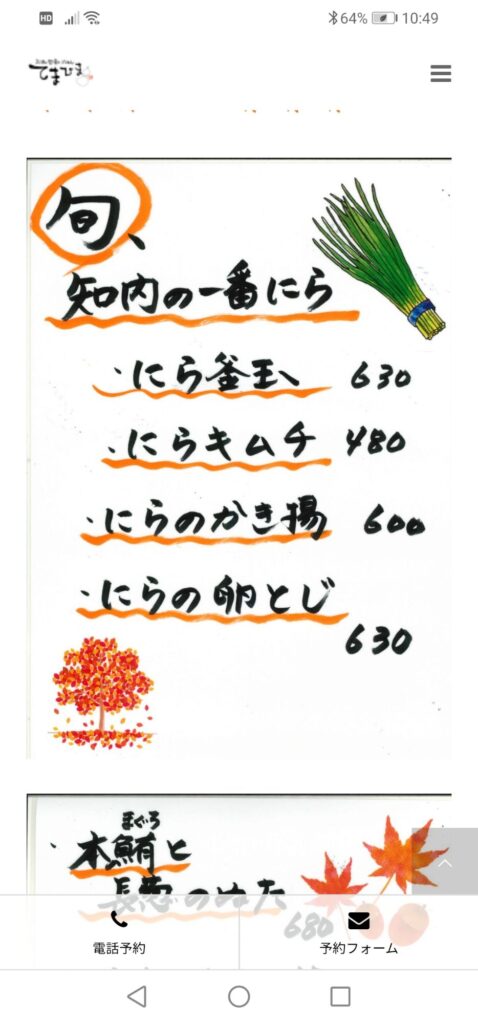 HD
64%
10:49
てまひま
旬、
知内の一番にら
・にら釜玉、 630
・にらキムチ 480
・にらのかき揚 600
・にらの卵とじ
630
まぐろ
・本鮪と
長葱のぬた
680
電話予約
予約フォーム